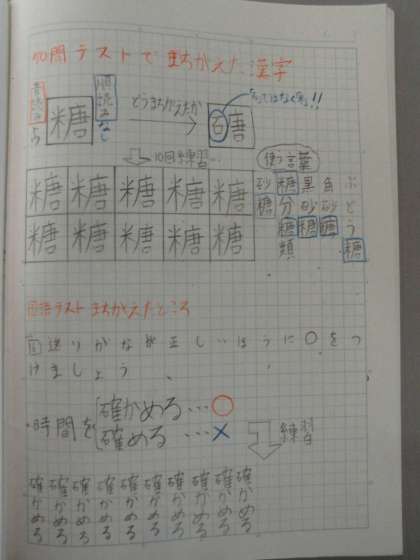 50問テストでまちがえた漢字
音読み
とう
糖
順読み
なし
どうまちがえたか
「石」ではなく「米」!!
石唐
10回練習
糖糖糖糖糖
糖糖糖糖糖
使う言葉
砂糖
糖分
糖類
黒砂糖
角砂糖
ぶどう糖
国語テストまちがえたところ
送りがなが正しいほうに○をつ
けましょう。
・時間を
確かめる…○
確める…×
練習
確かめる
確かめる
確かめる
確かめる
確かめる
確かめる
確かめる
確かめる
確かめる
確かめる